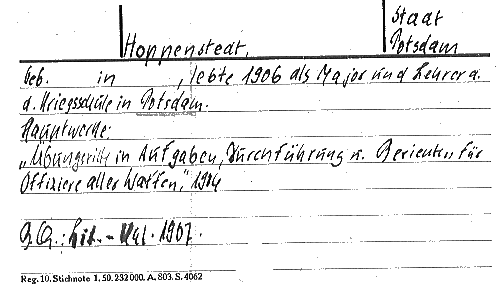 Staat
Potsdam
Hoppenstedt,
geb. in , lebte 1906 als Major und Lehrer a.
d. Kriegsschule in Potsdam.
Hauptwerke:
„Übungsritte in Aufgaben, Durchführung u. Berichten für
Offiziere aller Waffen," 1904
Lit. - Kal. 1907.
Reg. 10. Stichnote 1. 50. 232000. A. 803. S. 4062